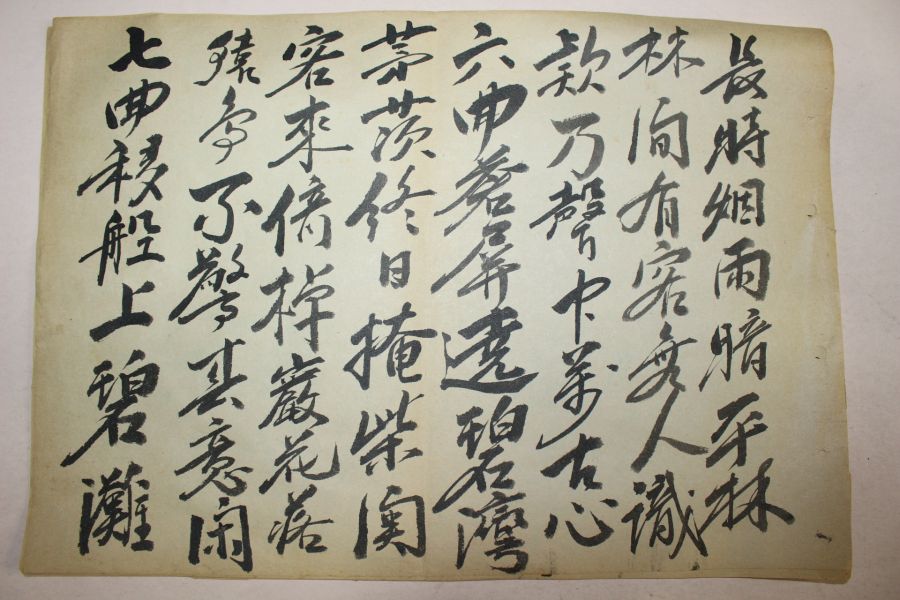 長時烟雨暗平林
林間有客無人識
欸乃聲中萬古心
六曲蒼屏遶碧灣
茅茨終日掩柴関
客來倚棹巖花落
猿鳥不驚春意閑
七曲移船上碧灘